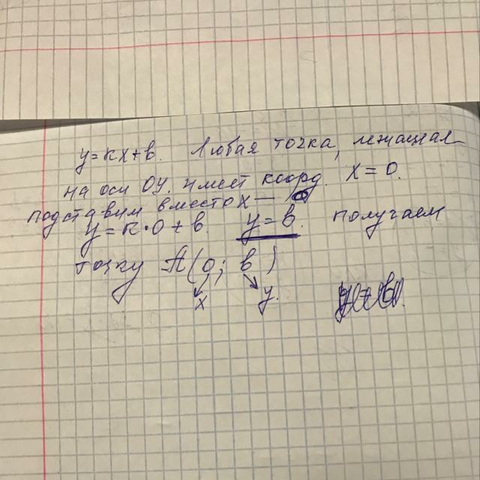 y=kx+b. Любая точка, лежащая
на оси OY, имеет коорд. x=0.
подставим вместо x — 0
y=k·0+b y=b. получаем
точку A(0; b)
x y.